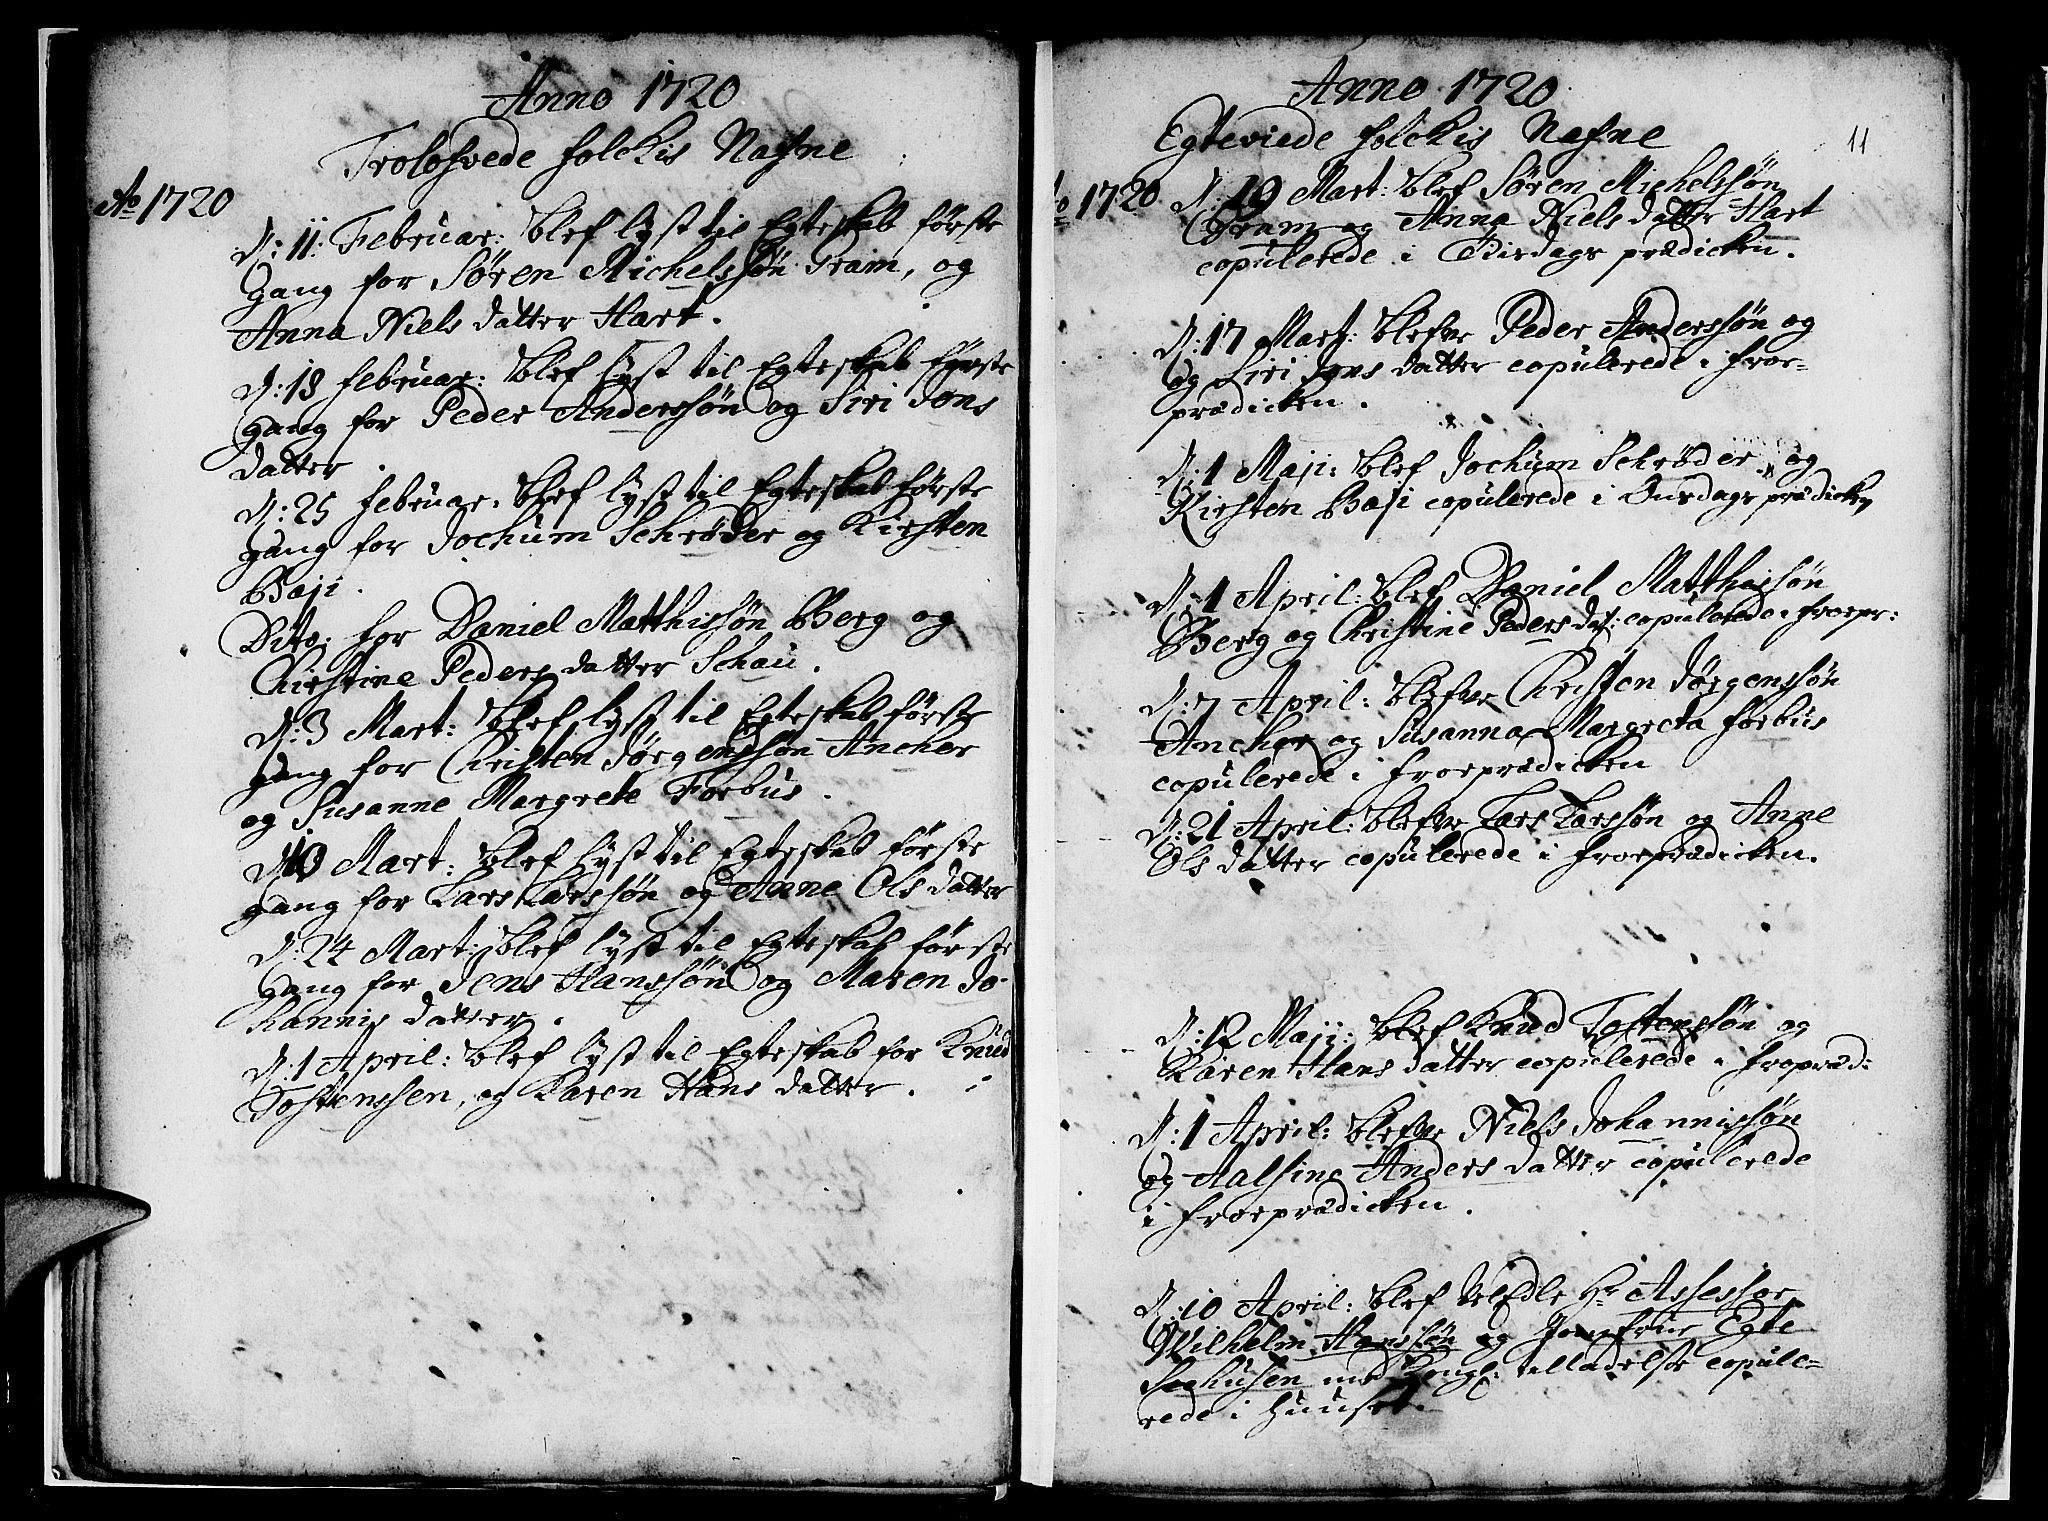 Anno 1720
Trolofvede folckis Nafne
Ao 1720
D: 11: Februar: blef lyst til Egteskab første
gang for Søren Michelssøn Gram, og
Anna Niels datter Hart.
D: 18 februar: blef lyst til Egteskab første
gang for Peder Anderssøn og Siri Jons
datter.
D: 25 februar. blef lyst til Egteskab første
gang for Jochum Schrøder og Kirsten
Baji.
Dito: for Daniel Matthissøn Berg og
Christine Peders datter Schau.
D: 3 Mart: blef lyst til Egteskab første
gang for Christen Jørgenssøn Ancher
og Susanne Margrete Forbus.
D: 10 Mart: blef lyst til Egteskab første
gang for Lars Larssøn og Anne Ols datter
D: 24 Mart: blef lyst til Egteskab første
gang for Jens Hanssøn og Maren Jo-
hannis datter.
D: 1 April: blef lyst til Egteskab for Knud
Tostenssen, og Karen Hans datter.
Anno 1720
11
Egteviede folckis Nafne
1720 D: 19 Mart: blef Søren Michelssøn
Gram og Anna Niels datter Hart
copulerede i Tisdags prædicken.
D: 17 Mart: blefve Peder Anderssøn og
og Siri Jons datter copulerede i froe-
prædicken.
D: 1 Maji: blef Jochum Schrøder og
Kirsten Baji copulerede i Onsdags prædicken
D: 1 April: blef Daniel Matthissøn
Berg og Christine Peders dat: copulerede i froepr:
D: 7 April: blefve Christen Jørgenssøn
Ancher og Susanna Margreta Forbus
copulerede i froeprædicken
D: 21 April: blefve Lars Larssøn og Anne
Ols datter copulerede i froeprædicken.
D: 12 Maji: blef Knud Tostenssøn og
Karen Hans datter copulerede i froepræd:
D: 1 April: blefve Niels Johannissøn
og Aalsine Anders datter copulerede
i froeprædicken.
D: 10 April: blef VelEdle Hr Assessor
Wilhelm Hanssøn og Jomfrue Egte
Seehusen med Kongl: tilladelse copule-
rede i Huuset.